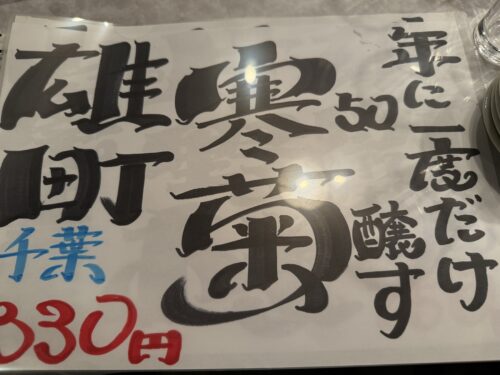 一年に一度だけ
醸す
寒菊
50
雄町
千葉
330円